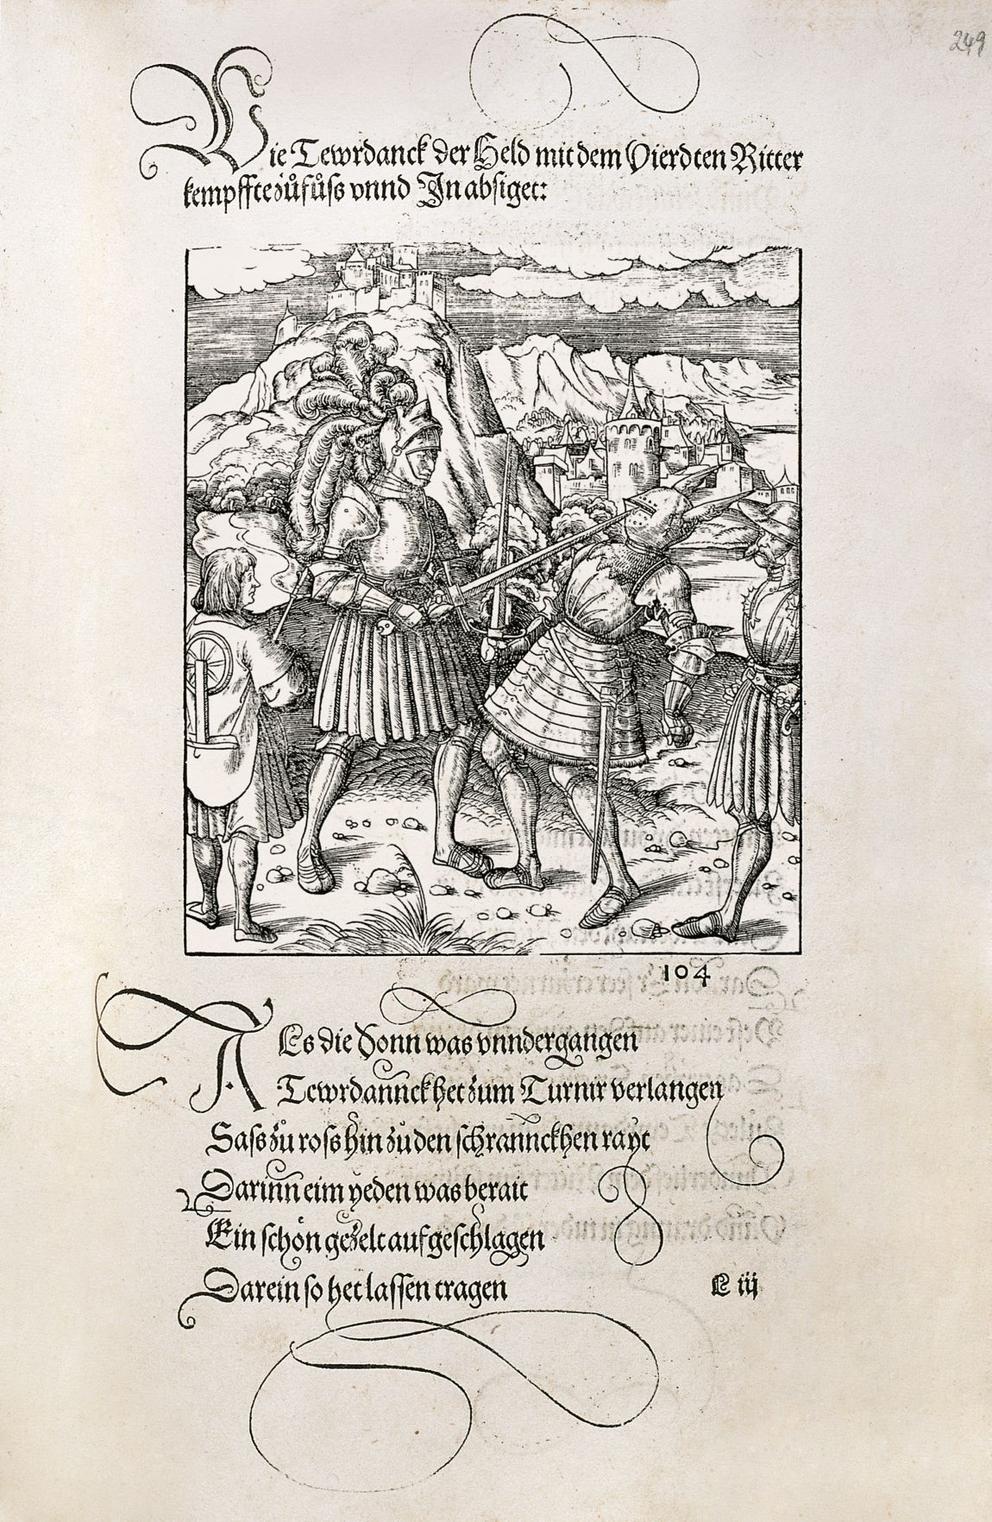 249
Wie Tewrdanck der Held mit dem Vierdten Ritter
kempffte zůfůſs vnnd In absiget:
104
ALs die Sonn was vnndergangen
Tewrdannck het zum Turnir verlangen
Saſs zu roſs hin zu den ſchrannckhen rayt
Darinn eim yeden was berait
Ein ſchön gezelt aufgeſchlagen
Darein ſo het laſſen tragen
iij